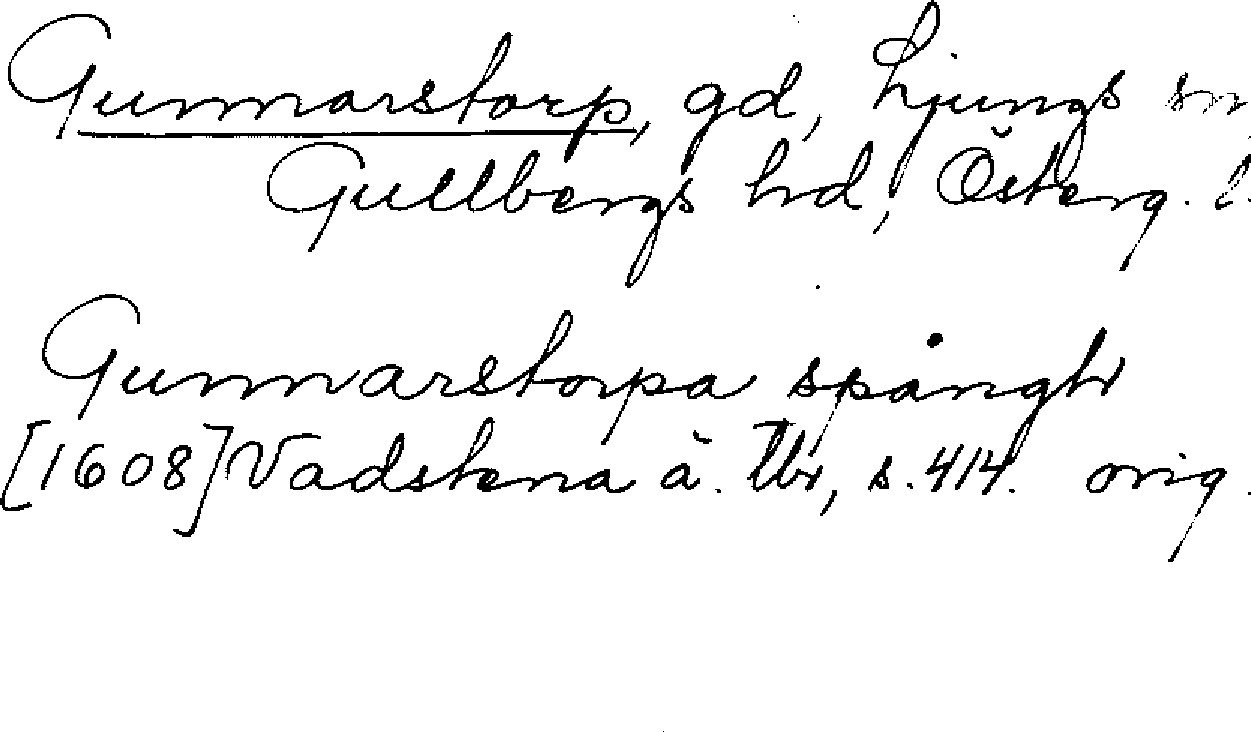 Gunnarstorp, gd, Ljungs sn,
Gullbergs hd, Österg. l.
Gunnarstorpa spångh
[1608] Vadstena ä. tbr, s. 414. orig.